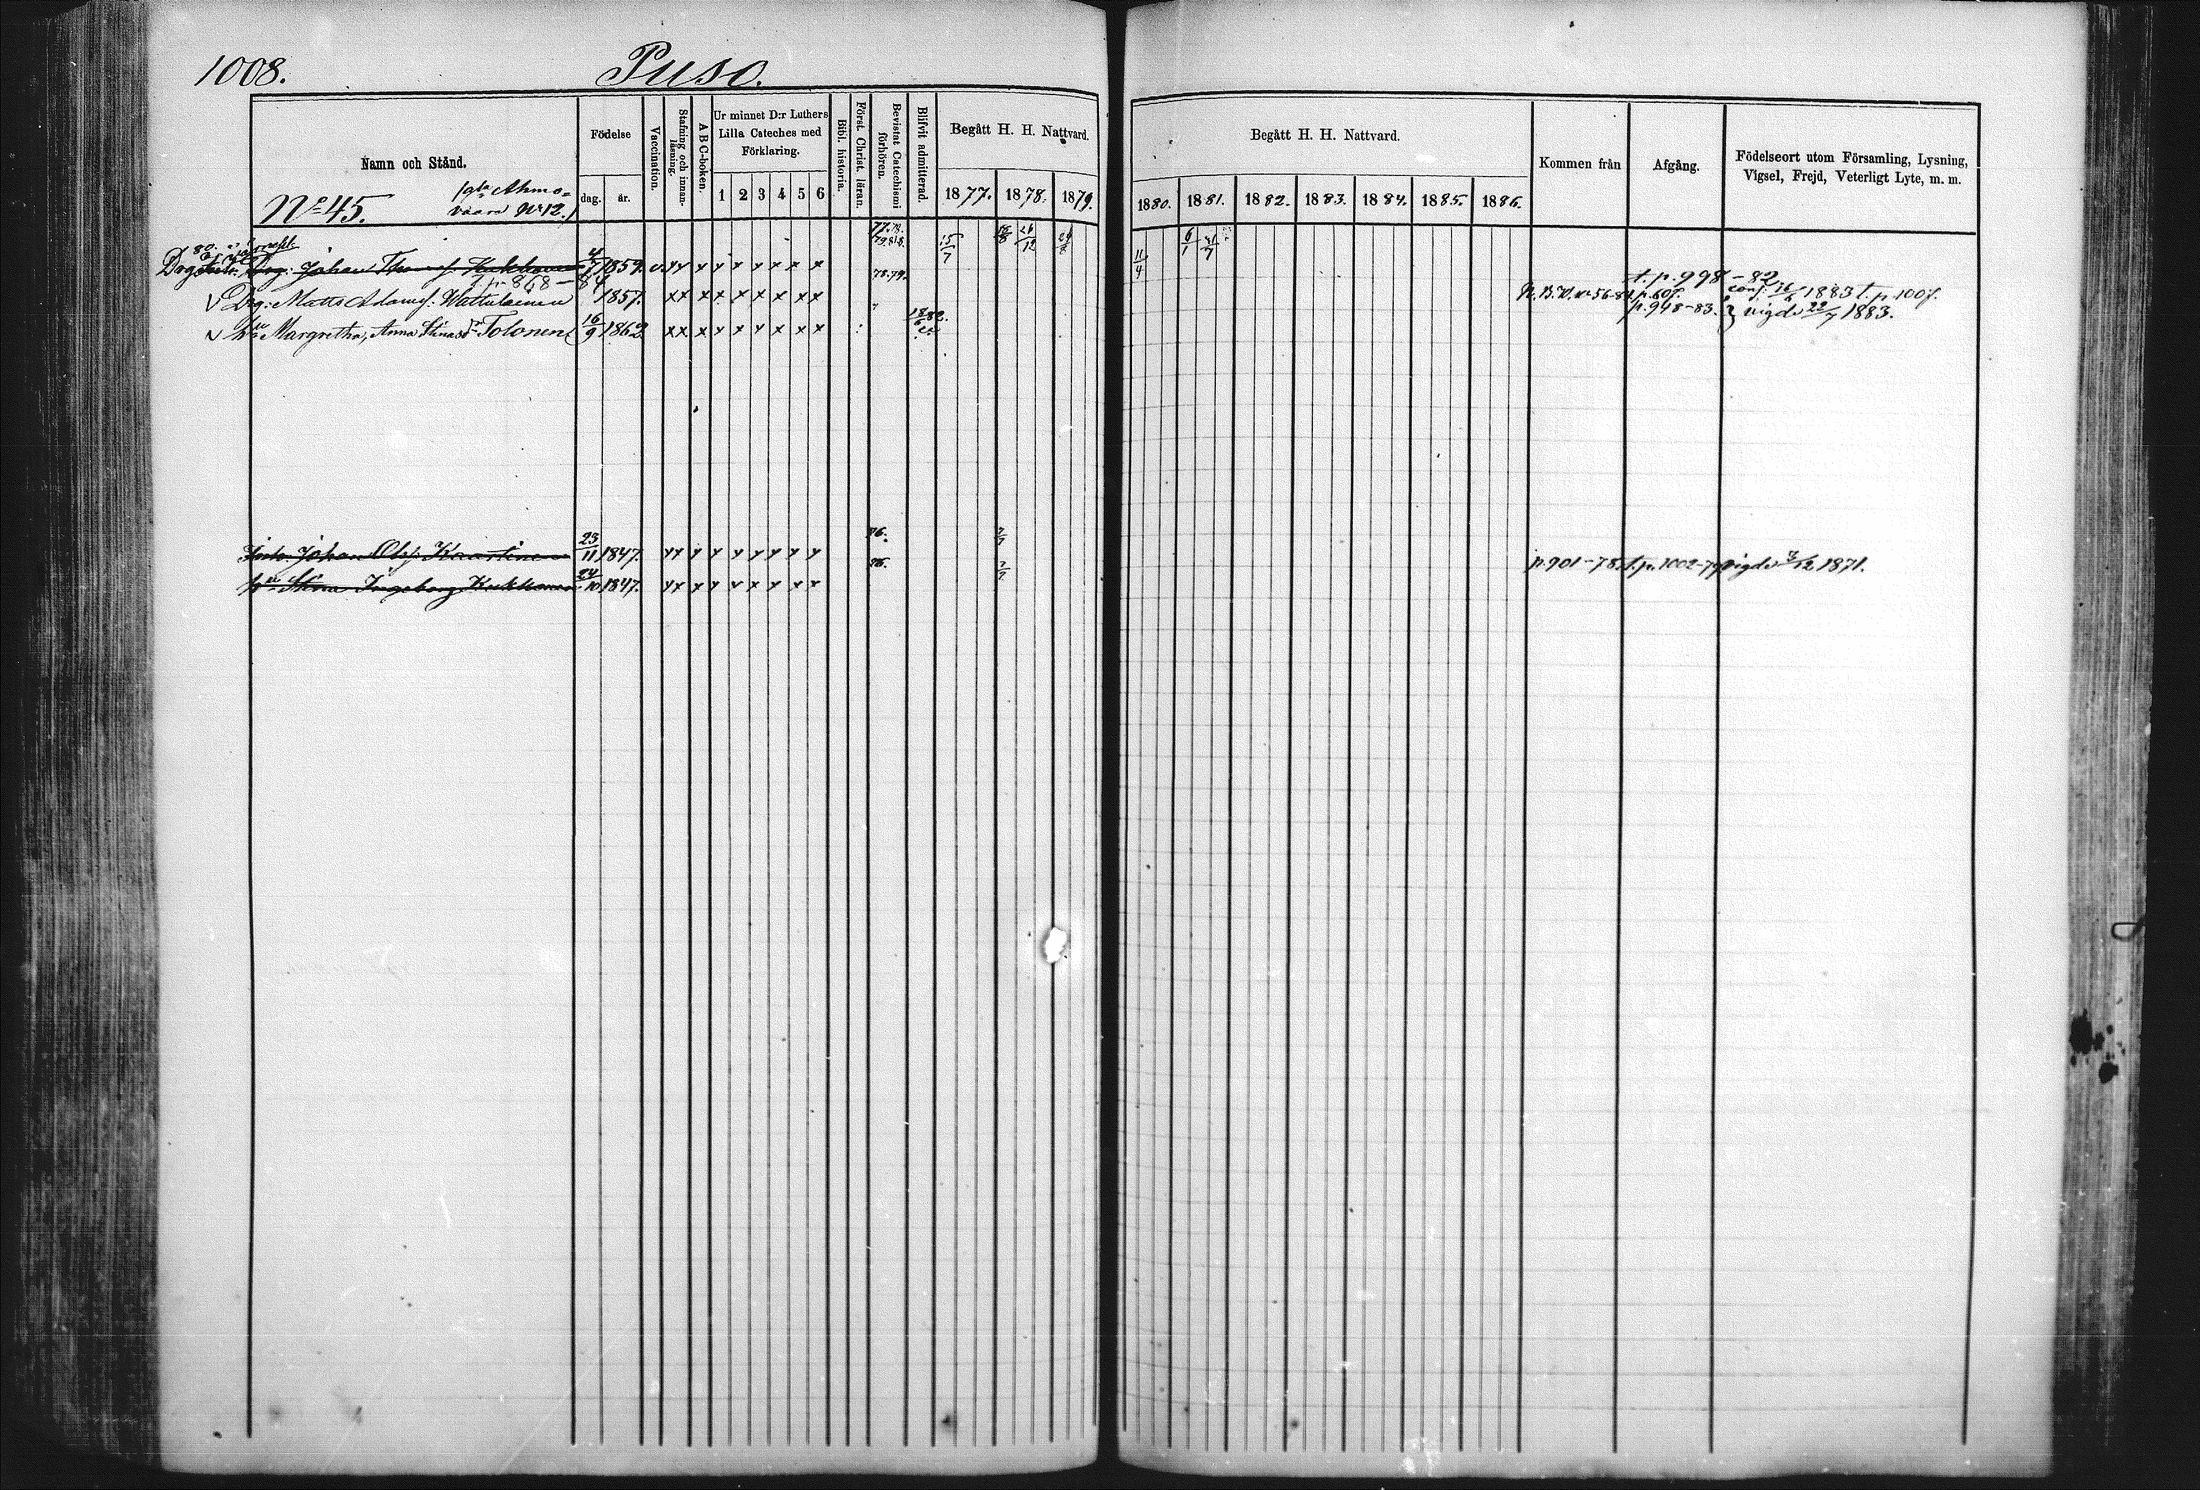 1008.
Puso.
Namn och Stånd.
Födelse
dag.
år.
Vaccination.
Stafning och innanläsning.
A B C-boken.
Ur minnet D:r Luthers
Lilla Cateches med
Förklaring.
1 2 3 4 5 6
Bibl. historia.
Först. Christ. läran.
Bevistat Catechismi
förhören.
Blifvit admitterad.
Begått H. H. Nattvard.
1877. 1878. 1879.
Begått H. H. Nattvard.
1880. 1881. 1882. 1883. 1884. 1885. 1886.
Kommen från
Afgång.
Födelseort utom Församling, Lysning,
Vigsel, Frejd, Veterligt Lyte, m. m.
No 45.
Ahmo-
vaara No 12.
77.78.
79.81.8.
15/7 24/12
11/4 6/1 31/7
Drg: Johan Kukkonen 4/7 1859. v. x x x x x x x x x 78.79. t. p. 998-82
p. 868-84
Drg: Matts Adamsf: Wattulainen 1857. x x x x x x x x x 56-84 p. 607. 1883 t. p. 1007.
hu Margretha, Anna Stina Tolonen 16/9 1862 x x x x x x x x x : 1882. p. 948-83. vigde 22/7 1883.
Johan Olofs: Kaartinen 23/11 1847. x x x x x x x x x 76. 7/7 p. 901-78. t. p. 1002-79 vigde 3/12 1871.
hu Stina Ingeborg Kukkonen 24/10 1847. x x x x x x x x x 76. 7/7